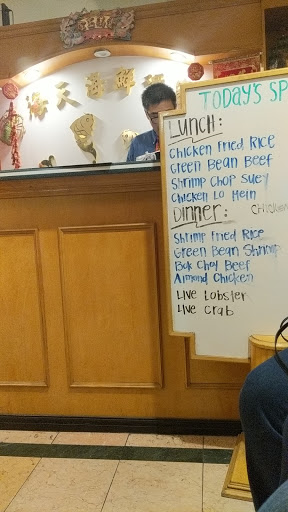 海天海鮮酒
TODAY'S SP
LUNCH:
Chicken Fried Rice
Green Bean Beef
Shrimp Chop Suey
Chicken Lo Mein
DINNER:
Chicken
Shrimp Fried Rice
Green Bean Shrimp
Bok Choy Beef
Almond Chicken
LIVE Lobster
LIVE Crab